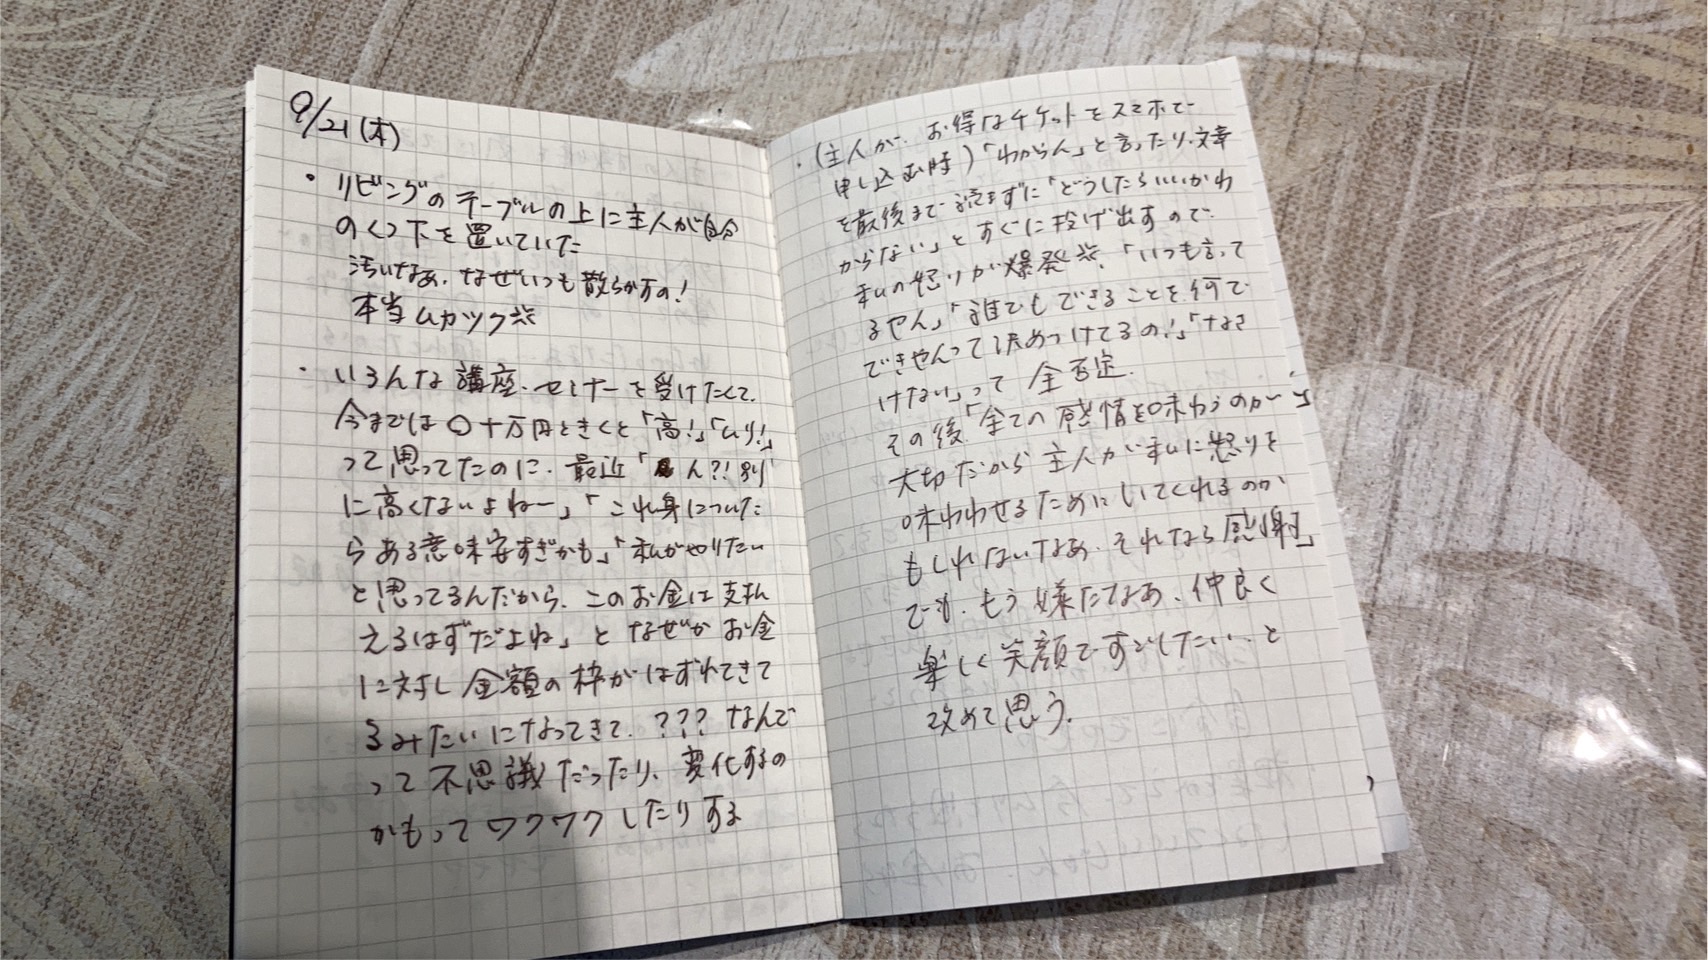 9/21(木)
・リビングのテーブルの上に主人が自分
のくつ下を置いていた
汚いなあ、なぜいつも散らかすの!
本当ムカツク※
・いろんな講座、セミナーを受けたくて、
今までは〇十万円ときくと「高!」「ムリ!」
って思ってたのに、最近「ん?!別
に高くないよねー」「これ身についた
らある意味安すぎかも」「私がやりたい
と思ってるんだから、このお金は支払
えるはずだよね」となぜかお金
に対し金額の枠がはずれてきて
るみたいになってきて、???なんで
って不思議だったり、変化するの
かもってワクワクしたりする
・(主人が、お得なチケットをスマホで
申し込む時)「わからん」と言ったり、文章
を最後まで読まずに「どうしたらいいかわ
からない」とすぐに投げ出すので、
私の怒りが爆発※、「いつも言って
るやん」「誰でもできることを何で
できやんって決めつけてるの!」「なさ
けない」って全否定。
その後「全ての感情を味わうのが
大切だから主人が私に怒りを
味わわせるためにしてくれるのか
もしれないなあ、それなら感謝」
でも、もう嫌だなあ、仲良く
楽しく笑顔ですごしたい、と
改めて思う。